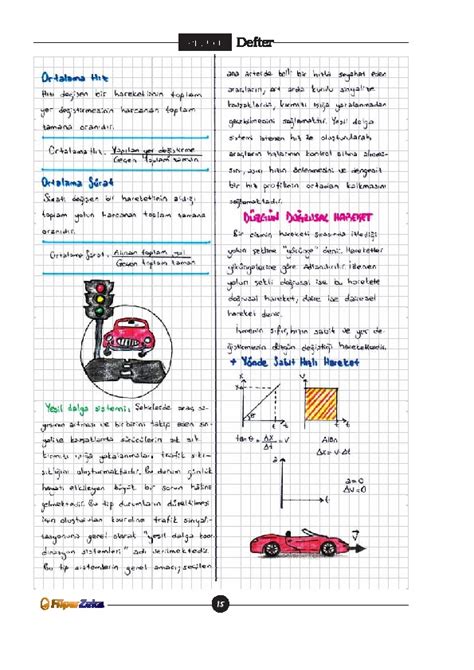 Defter
Ortalama Hız
Hızı değişen bir hareketlinin toplam
yer değiştirmesinin harcanan toplam
zamana oranıdır.
Ortalama Hız: Yapılan yer değiştirme
Geçen toplam zaman
Ortalama Sürat
Sürati değişen bir hareketlinin aldığı
toplam yolun harcanan toplam zamana
oranıdır.
Ortalama Sürat: Alınan toplam yol
Geçen toplam zaman
Yeşil dalga sistemi: Şehirlerde araç sa-
yısının artması ve birbirini takip eden sin-
yalize kavşaklarda sürücülerin sık sık
kırmızı ışığa yakalanmaları trafik sıkı-
şıklığını oluşturmaktadır. Bu durum günlük
hayatı etkileyen büyük bir sorun hâline
gelmektedir. Bu tip durumların düzeltilmesi
için oluşturulan koordine trafik sinyali-
zasyonuna genel olarak "yeşil dalga koor-
dinasyon sistemleri" adı verilmektedir.
Bu tip sistemlerin genel amacı; seçilen
ana arterde belli bir hızla seyahat eden
araçların, art arda kurulu sinyalize
kavşaklardan, kırmızı ışığa yakalanmadan
geçebilmesini sağlamaktır. Yeşil dalga
sistemi istenen hız ile oluşturularak
araçların hızlarının kontrol altına alınma-
sını, aşırı hızın önlenmesini ve dengesiz
bir hız profilinin ortadan kalkmasını
sağlamaktadır.
DÜZGÜN DOĞRUSAL HAREKET
Bir cismin hareketi sırasında izlediği
yolun şekline "yörünge" denir. Hareketler
yörüngelerine göre adlandırılır. İzlenen
yolun şekli doğrusal ise bu harekete
doğrusal hareket, daire ise dairesel
hareket denir.
İvmenin sıfır, hızın sabit ve yer de-
ğiştirmenin düzgün değiştiği hareketlerdir.
+ Yönde Sabit Hızlı Hareket
x
v
t
t
tanθ = Δx/Δt = v
Alan
Δx = v.Δt
a
t
a=0
Δv=0
v
HiperZeka
15